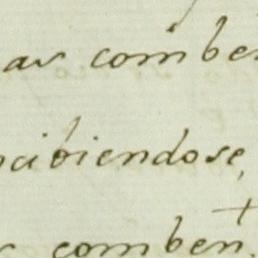 ar combe
cibiendose,
combén.